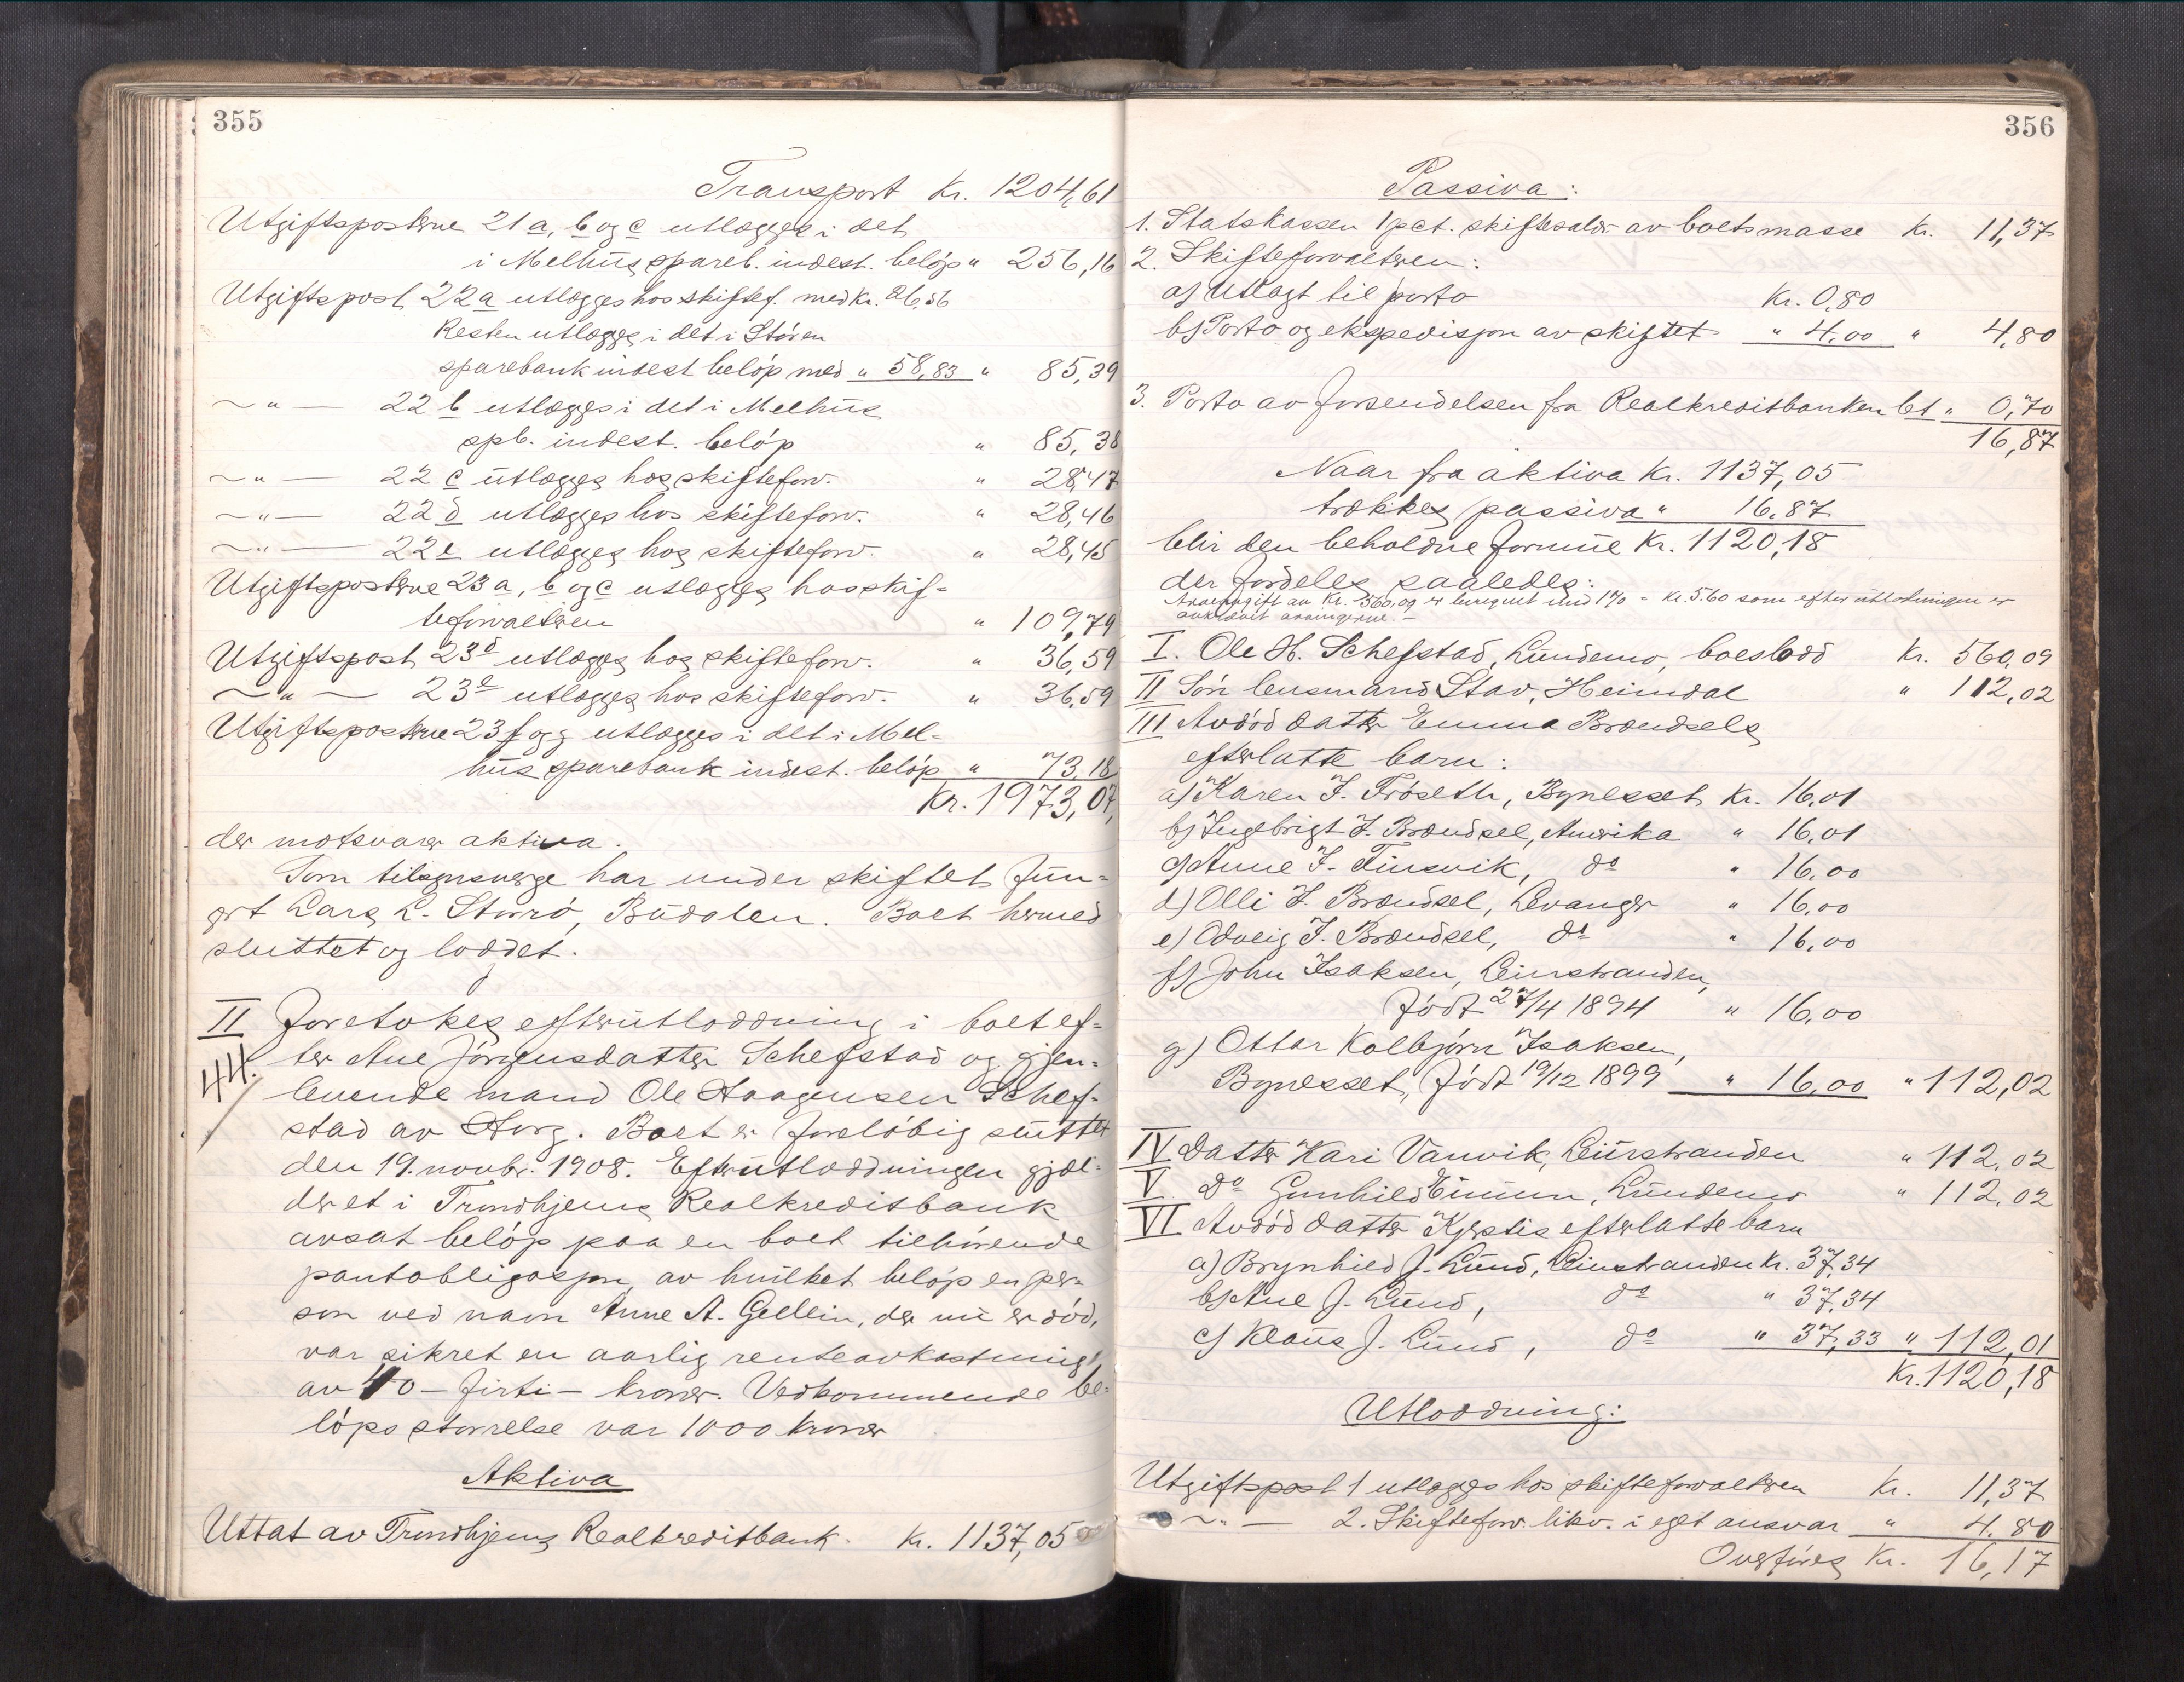 355
Transport Kr. 1204,61
Utgiftsposterne 21 a, b og c utlægges i det
i Melhus spareb. indest. beløp " 256,16
Utgiftspost 22 a utlægges hos skiftef. med kr. 26,56
Resten utlægges i det i Støren
sparebank indest beløp med " 58,83 " 85,39
~ " — 22 b utlægges i det i Melhus
spb. indest. beløp " 85,38
~ " — 22 c utlægges hos skifteforv. " 28,47
~ " — 22 d utlægges hos skifteforv. " 28,46
~ " — 22 e utlægges hos skifteforv. " 28,45
Utgiftsposterne 23 a, b og c utlægges hos skif-
teforvalteren " 109,79
Utgiftspost 23 d utlægges hos skifteforv. " 36,59
~ " ~ 23 e utlægges hos skifteforv. " 36,59
Utgiftsposterne 23 f og g utlægges i det i Mel-
hus sparebank indest. beløp " 73,18
Kr. 1973,07,
der motsvarer aktiva.
Som tilsynsverge har under skiftet fun-
gert Lars L. Storrø, Budalen. Boet hermed
sluttet og loddet.
II Foretokes efterutlodning i boet ef-
44. ter Ane Jørgensdatter Schefstad og gjen-
levende mand Ole Haagensen Schef-
stad av Horg. Boet er foreløbig sluttet
den 19. novbr. 1908. Efterutlodningen gjæl-
der et i Trondhjems Realkreditbank
avsat beløp paa en boet tilhørende
pantobligasjon, av hvilket beløp en per-
son ved navn Anne A. Gellein, der nu er død,
var sikret en aarlig renteavkastning
av 40 - firti - kroner. Vedkommende be-
løps størrelse var 1000 kroner
Aktiva
Uttat av Trondhjems Realkreditbank. Kr. 1137,05
356
Passiva:
1. Statskassen 1 pct. skiftesalær av boets masse Kr. 11,37
2. Skifteforvalteren:
a) Utlagt til porto Kr. 0,80
b) Porto og ekspedisjon av skiftet " 4,00 " 4,80
3. Porto av forsendelsen fra Realkreditbanken bet " 0,70
16,87
Naar fra aktiva Kr. 1137,05
trækkes passiva " 16,87
blir den beholdne formue Kr. 1120,18
der fordeles saaledes:
Arveavgift av Kr. 560,09 er beregnet med 1% = kr. 5.60 som efter utlodningen er
avkrævet arvingerne. -
I. Ole H. Schefstad, Lundemo, boeslodd Kr. 560,09
II Søn lensmand Stav, Heimdal " 112,02
III Avdød datter Emma Brændsels
efterlatte barn:
a) Karen I. Frøseth, Bynesset Kr. 16,01
b) Ingebrigt I. Brændsel, Amerika " 16,01
c) Anne I. Finsvik, do " 16,00
d) Olli I. Brændsel, Levanger " 16,00
e) Odveig I. Brændsel, do " 16,00
f) John Isaksen, Leinstranden,
født 27/4 1894 " 16,00
g) Ottar Kolbjørn Isaksen,
Bynesset, født 19/12 1899 " 16,00 " 112,02
IV Datter Kari Vanvik, Leinstranden " 112,02
V do Gunhild Eimun, Lundemo " 112,02
VI Avdød datter Kjerstis efterlatte barn
a) Brynhild J. Lund, Leinstranden Kr. 37,34
b) Ane J. Lund, do " 37,34
c) Klaus J. Lund, do " 37,33 " 112,01
Kr. 1120,18
Utlodning:
Utgiftspost 1 utlægges hos skifteforvalteren Kr. 11,37
~ " — 2. Skifteforv. likv. i eget ansvar " 4,80
Overføres Kr. 16,17